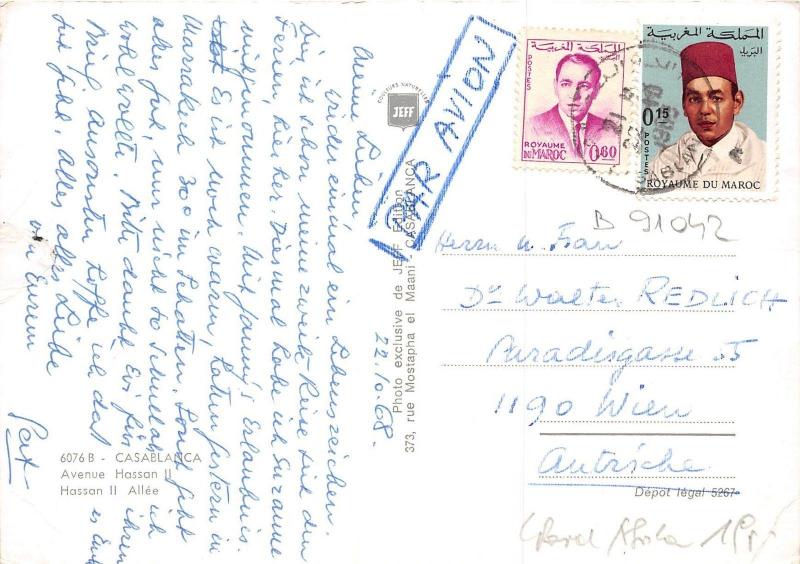 Meine Lieben!
Wieder einmal ein Lebenszeichen.
Bin ich schon meine zweite Reise seit den
Ferien, hierher. Diesmal habe ich Suzanne
mitgenommen. Mit Erlaubnis.
Es ist noch warm, hatten gestern in
Marrakech 30° im Schatten. Sonst geht
alles gut, nur nicht so schnell als ich
wohl wollte. Bitte danke Evi für ihren
Brief. Ansonsten hoffe ich daß es Euch
gut geht, alles alles Liebe
von Eurem
22.10.68.
PAR AVION
COULEURS NATURELLES
JEFF
Photo exclusive de JEFF Edition
373, rue Mostapha el Maani, CASABLANCA
6076 B - CASABLANCA
Avenue Hassan II
Hassan II Allée
المملكة المغربية
POSTES
ROYAUME
DU MAROC
0,60
المملكة المغربية
البريد
0,15
POSTES
ROYAUME DU MAROC
B 91042
Herrn u. Frau
Dr Walter REDLICH
Paradisgasse 55
1190 Wien
Autriche
Dépôt légal 5267